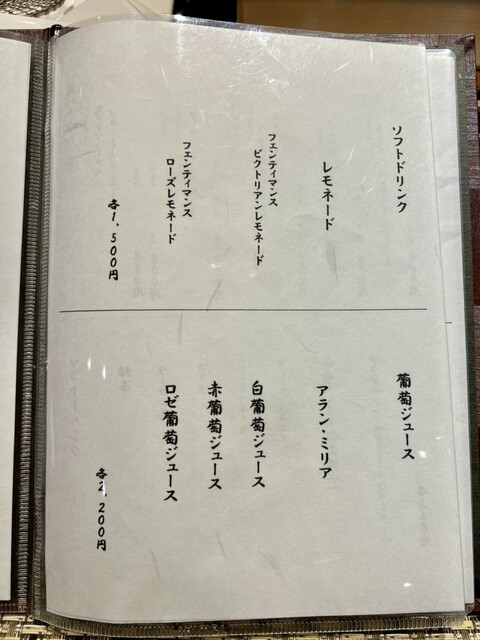 ソフトドリンク
レモネード
フェンティマンス
ビクトリアンレモネード
フェンティマンス
ローズレモネード
各1,500円
葡萄ジュース
アラン・ミリア
白葡萄ジュース
赤葡萄ジュース
ロゼ葡萄ジュース
各2,200円